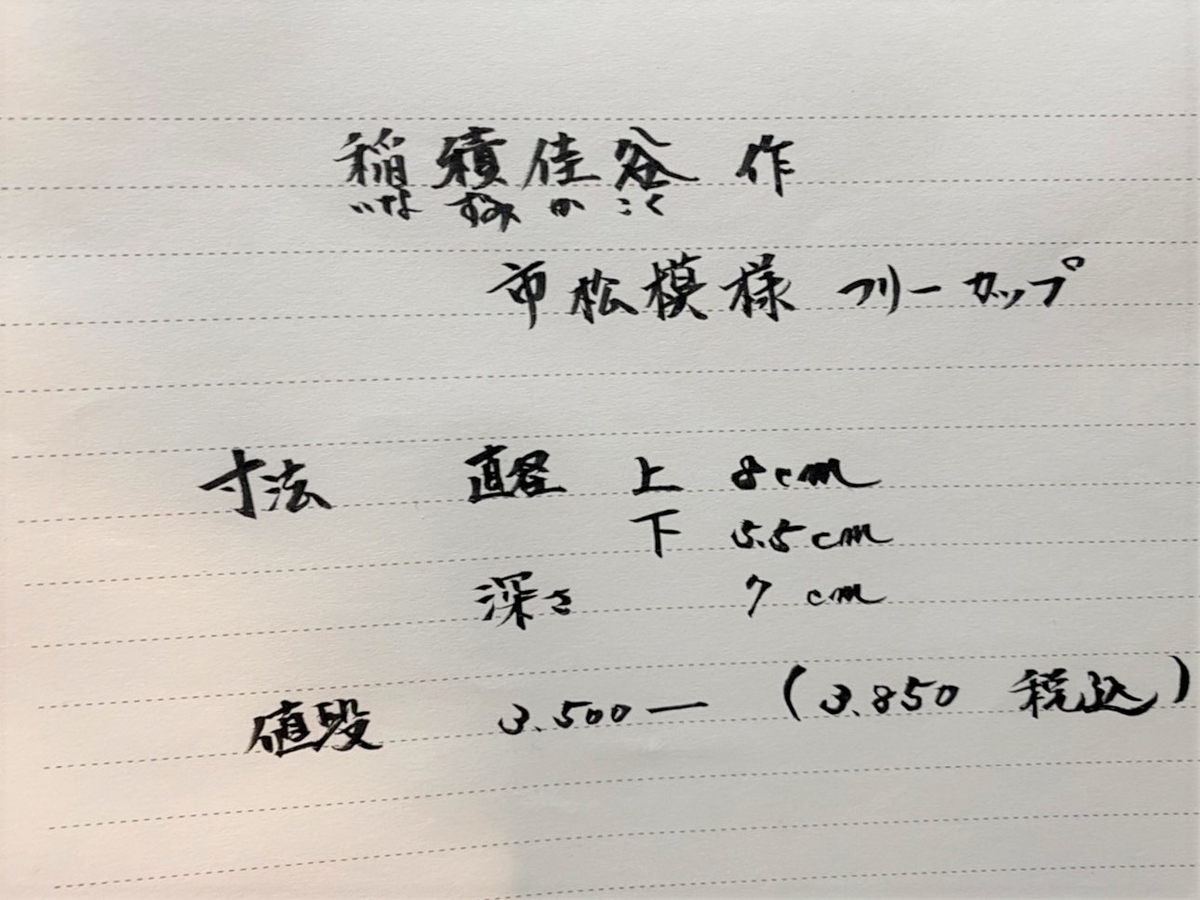 稲積佳谷 作
いなずみかこく
市松模様 フリーカップ
寸法 直径 上 8cm
下 5.5cm
深さ 7cm
値段 3.500ー (3.850 税込)